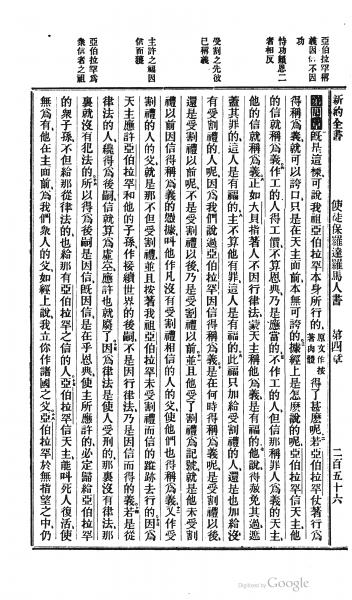 新約全書 使徒保羅達羅馬人書 第四章 二百五十六
亞伯拉罕稱
義因信不因
功
恃功賴恩二
者相反
受割之先彼
已稱義
主許之福因
信而獲
亞伯拉罕爲
衆信者之祖
第四章既是這樣可說我祖亞伯拉罕本身所行的原文作按著肉體得了甚麼呢若亞伯拉罕仗著行爲
得稱爲義就可以誇口只是在天主面前本無可誇的據經上是怎麼說的呢亞伯拉罕信天主他
的信就稱爲義作工的人得工價不算恩典乃是應當的不作工的人但信那稱罪人爲義的天主
他的信就稱爲義正如大闢指著人不因行律法蒙天主稱他爲義是有福的他說得赦免其過遮
蓋其罪的這人是有福的主不算他有罪這人是有福的此福只加給受割禮的人還是也加給沒
有受割禮的人呢因爲我們說過亞伯拉罕因信得稱爲義是在何時得稱爲義呢是受割禮以後
還是受割禮以前呢不是受割禮以後乃是受割禮以前並且他受了割禮爲記號就是他未受割
禮以前因信得稱爲義的憑據叫他作凡沒有受割禮相信的人的父使他們也得稱爲義又作受
割禮的人的父就是那不但受割禮並且按著我祖亞伯拉罕未受割禮而信的蹤跡去行的因爲
天主應許亞伯拉罕和他的子孫作接續世界的後嗣不是因行律法乃是因信而得的義若是從
律法的人纔得爲後嗣信就算爲虛空應許也就廢了因爲律法是使人受刑的那裏沒有律法那
裏就沒有犯法的所以得爲後嗣是因信既因信是在乎恩典使主所應許的必定歸給亞伯拉罕
的衆子孫不但給那從律法的也給那有亞伯拉罕之信的人亞伯拉罕信天主能叫死人復活使
無爲有他在主面前爲我們衆人的父如經上說我立你作諸國之父亞伯拉罕於無指望之中仍
Digitized by Google